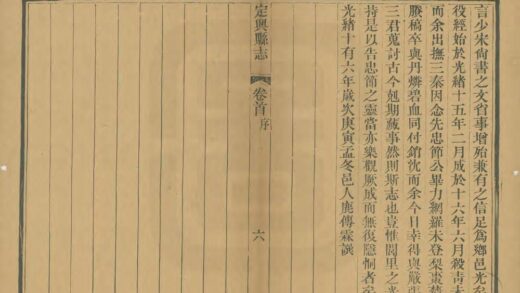 言少宋尙書之文省事增殆兼有之信足爲鄕邑光矣
役經始於光緒十五年二月成於十六年六月殺靑
而余出撫三秦因念先忠節公畢力網羅未登梨棗
賸稿卒與丹燐碧血同付銷沈而余今日幸得與嚴
三君蒐討古今剋期蕆事然則斯志也豈惟閭里之光
持是以告忠節之靈當亦樂觀厥成而無復隱恫者矣
光緒十有六年歲次庚寅孟冬邑人鹿傳霖譔
定興縣志
卷首 序
六